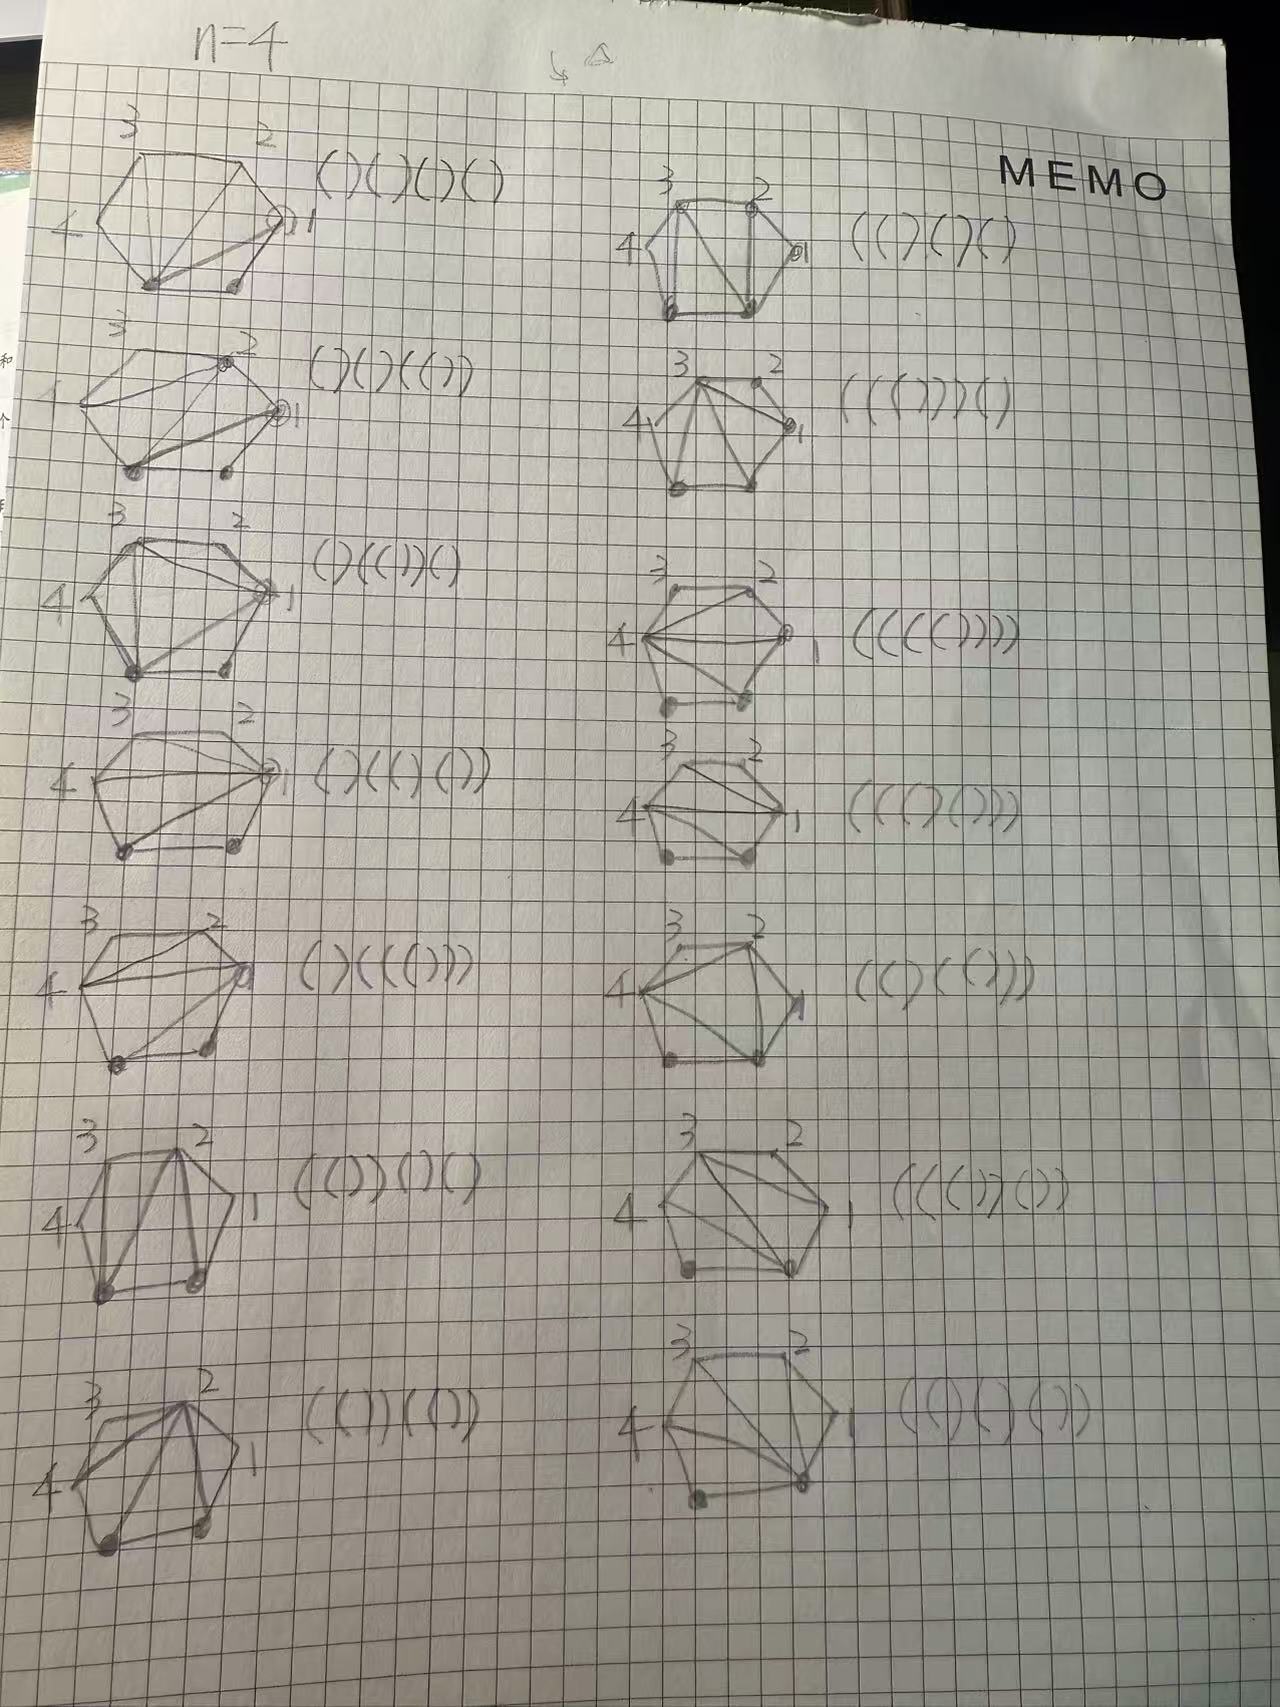 n=4
3 2
4 1 ()()()()
3 2
4 1 ()()(())
3 2
4 1 ()(())()
3 2
4 1 ()(()())
3 2
4 1 ()((()))
3 2
4 1 (())()()
3 2
4 1 (())(())
MEMO
3 2
4 1 (()()()
3 2
4 1 ((()))()
3 2
4 1 (((())))
3 2
4 1 ((()()))
3 2
4 1 (()(()))
3 2
4 1 ((())())
3 2
4 1 (()()())
和
个